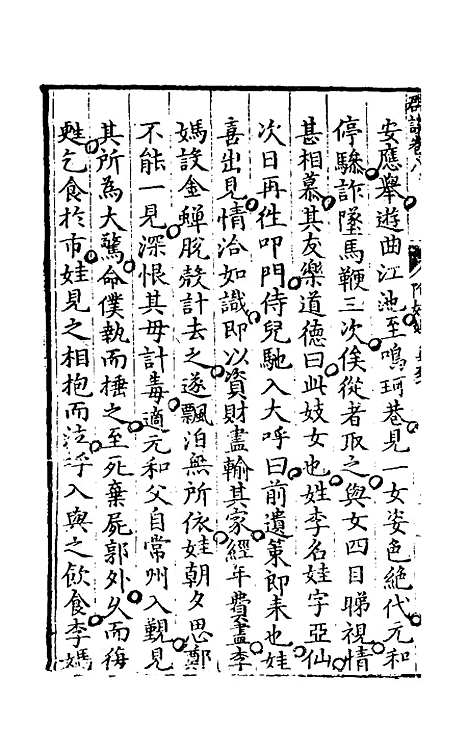 安應舉遊曲江池至鳴珂巷見一女姿色絕代元和
停驂詐墜馬鞭三次俟從者取之與女四目睇視情
甚相慕其友樂道德曰此妓女也姓李名娃字亞仙
次日再徃叩門侍兒馳入大呼曰前遺策郎來也娃
喜出見情洽如識即以資財盡輸其家經年費盡李
媽設金蟬脫殼計去之遂飄泊無所依娃朝夕思鄭
不能一見深恨其毋計毒適元和父自常州入覲見
其所為大驚命僕執而捶之至死棄屍郭外久而復
甦乞食於市娃見之相抱而泣呼入與之飲食李媽